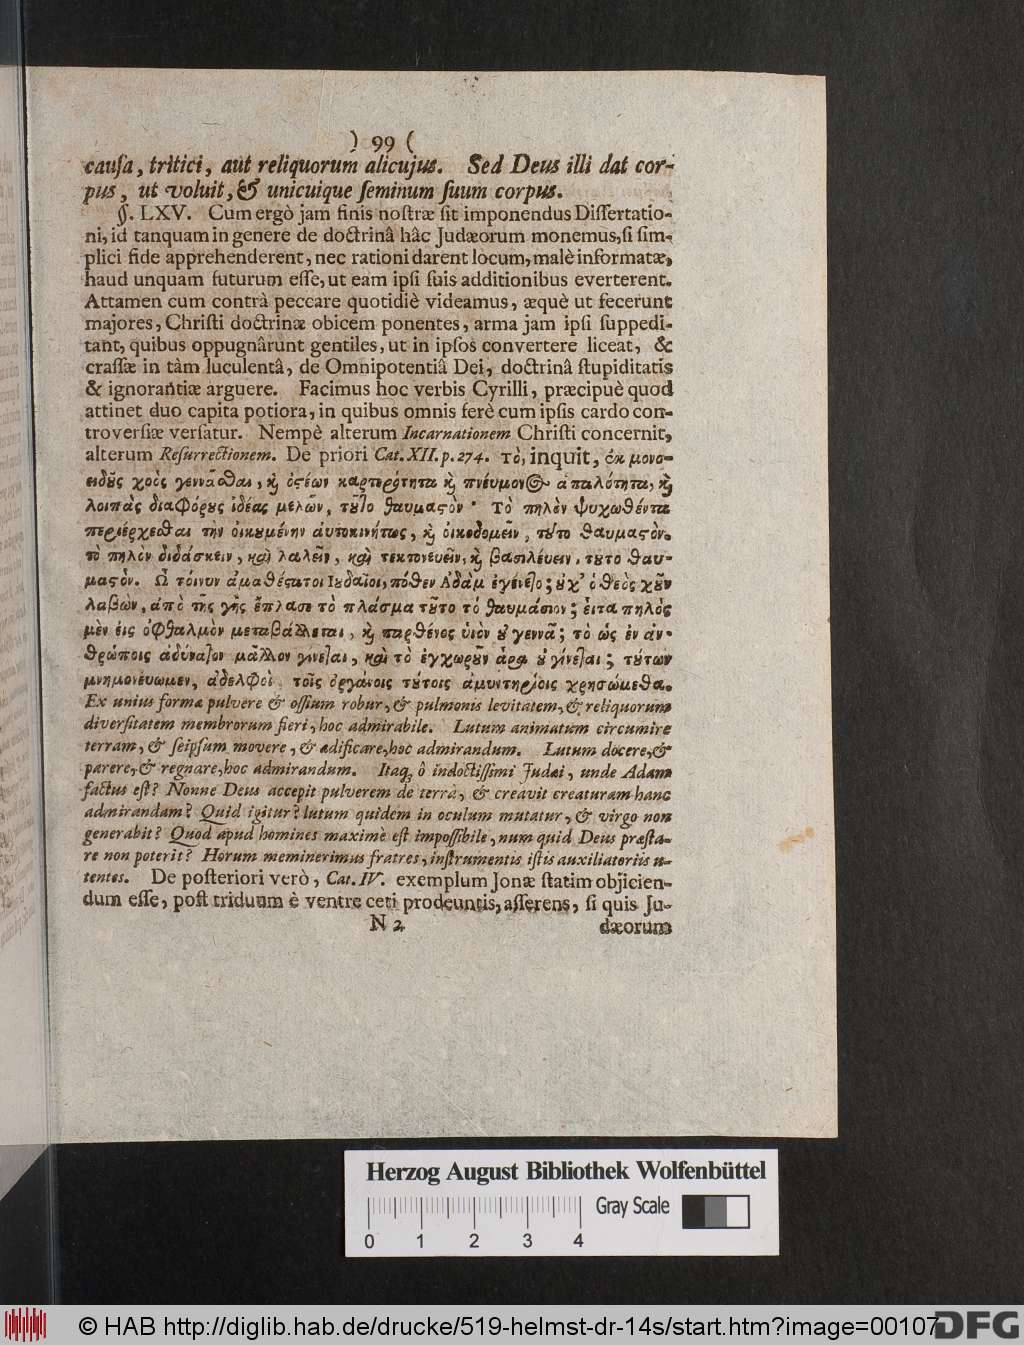 ) 99 (
cauſa, tritici, aut reliquorum alicujus. Sed Deus illi dat cor-
pus, ut voluit, & unicuique ſeminum ſuum corpus.
§. LXV. Cum ergò jam finis noſtræ ſit imponendus Diſſertatio-
ni, id tanquam in genere de doctrinâ hâc Judæorum monemus, ſi ſim-
plici fide apprehenderent, nec rationi darent locum, malè informatæ,
haud unquam futurum eſſe, ut eam ipſi ſuis additionibus everterent.
Attamen cum contrà peccare quotidiè videamus, æquè ut fecerunt
majores, Chriſti doctrinæ obicem ponentes, arma jam ipſi ſuppedi-
tant, quibus oppugnârunt gentiles, ut in ipſos convertere liceat, &
craſſæ in tàm luculentâ, de Omnipotentiâ Dei, doctrinâ ſtupiditatis
& ignorantiæ arguere. Facimus hoc verbis Cyrilli, præcipuè quod
attinet duo capita potiora, in quibus omnis ferè cum ipſis cardo con-
troverſiæ verſatur. Nempè alterum Incarnationem Chriſti concernit,
alterum Reſurrectionem. De priori Cat. XII. p. 274. τὸ, inquit, ἐκ μονο-
ειδοῦς χοὸς γεννᾶσθαι, ϗ ὀϛέων καρτερότητα ϗ πνέυμονος ἁπαλότητα, ϗ
λοιπὰς διαφόρους ἰδέας μελῶν, τοῦτο θαυμαϛὸν· Τὸ πηλὸν ψυχωθέντα
περιέρχεσθαι τὴν ὀικουμένην ἀυτοκινήτως, ϗ ὀικοδομεῖν, τοῦτο θαυμαϛὸν.
τὸ πηλὸν διδάσκειν, καὶ λαλεῖν, καὶ τεκτονέυειν, ϗ βασιλέυειν, τοῦτο θαυ-
μαϛὸν. Ὦ τόινυν ἀμαθέϛατοι Ιουδαῖοι, πόθεν Αδὰμ ἐγένετο; ουχ' ὁ θεὸς χοῦν
λαβὼν, ἀπὸ τῆς γῆς ἔπλασε τὸ πλάσμα τοῦτο τὸ θαυμάσιον; ἐιτα πηλὸς
μὲν ἐις ὀφθαλμὸν μεταβάλλεται, ϗ παρθένος ὑιὸν ου γεννᾷ; τὸ ὡς ἐν ἀν-
θρώποις ἀδύνατον μᾶλλον γίνεται, καὶ τὸ ἐγχωροῦν ἆρα ου γίνεται; τούτων
μνημονέυωμεν, ἀδελφοὶ. τοῖς ὀργάνοις τούτοις ἀμυντηρίοις χρησώμεθα.
Ex unius formæ pulvere & oſſium robur, & pulmonis levitatem, & reliquorum
diverſitatem membrorum fieri, hoc admirabile. Lutum animatum circumire
terram, & ſeipſum movere, & ædificare, hoc admirandum. Lutum docere, &
parere, & regnare, hoc admirandum. Itaq; ô indoctiſſimi Judæi, unde Adam
factus eſt? Nonne Deus accepit pulverem de terrâ, & creavit creaturam hanc
admirandam? Quid igitur? lutum quidem in oculum mutatur, & virgo non
generabit? Quod apud homines maximè eſt impoſſibile, num quid Deus præſta-
re non poterit? Horum meminerimus fratres, inſtrumentis iſtis auxiliatoriis u-
tentes. De poſteriori verò, Cat. IV. exemplum Jonæ ſtatim objicien-
dum eſſe, poſt triduum è ventre ceti prodeuntis, aſſerens, ſi quis Ju-
N 2 dæorum
Herzog August Bibliothek Wolfenbüttel
Gray Scale
0 1 2 3 4
© HAB http://diglib.hab.de/drucke/519-helmst-dr-14s/start.htm?image=00107
DFG